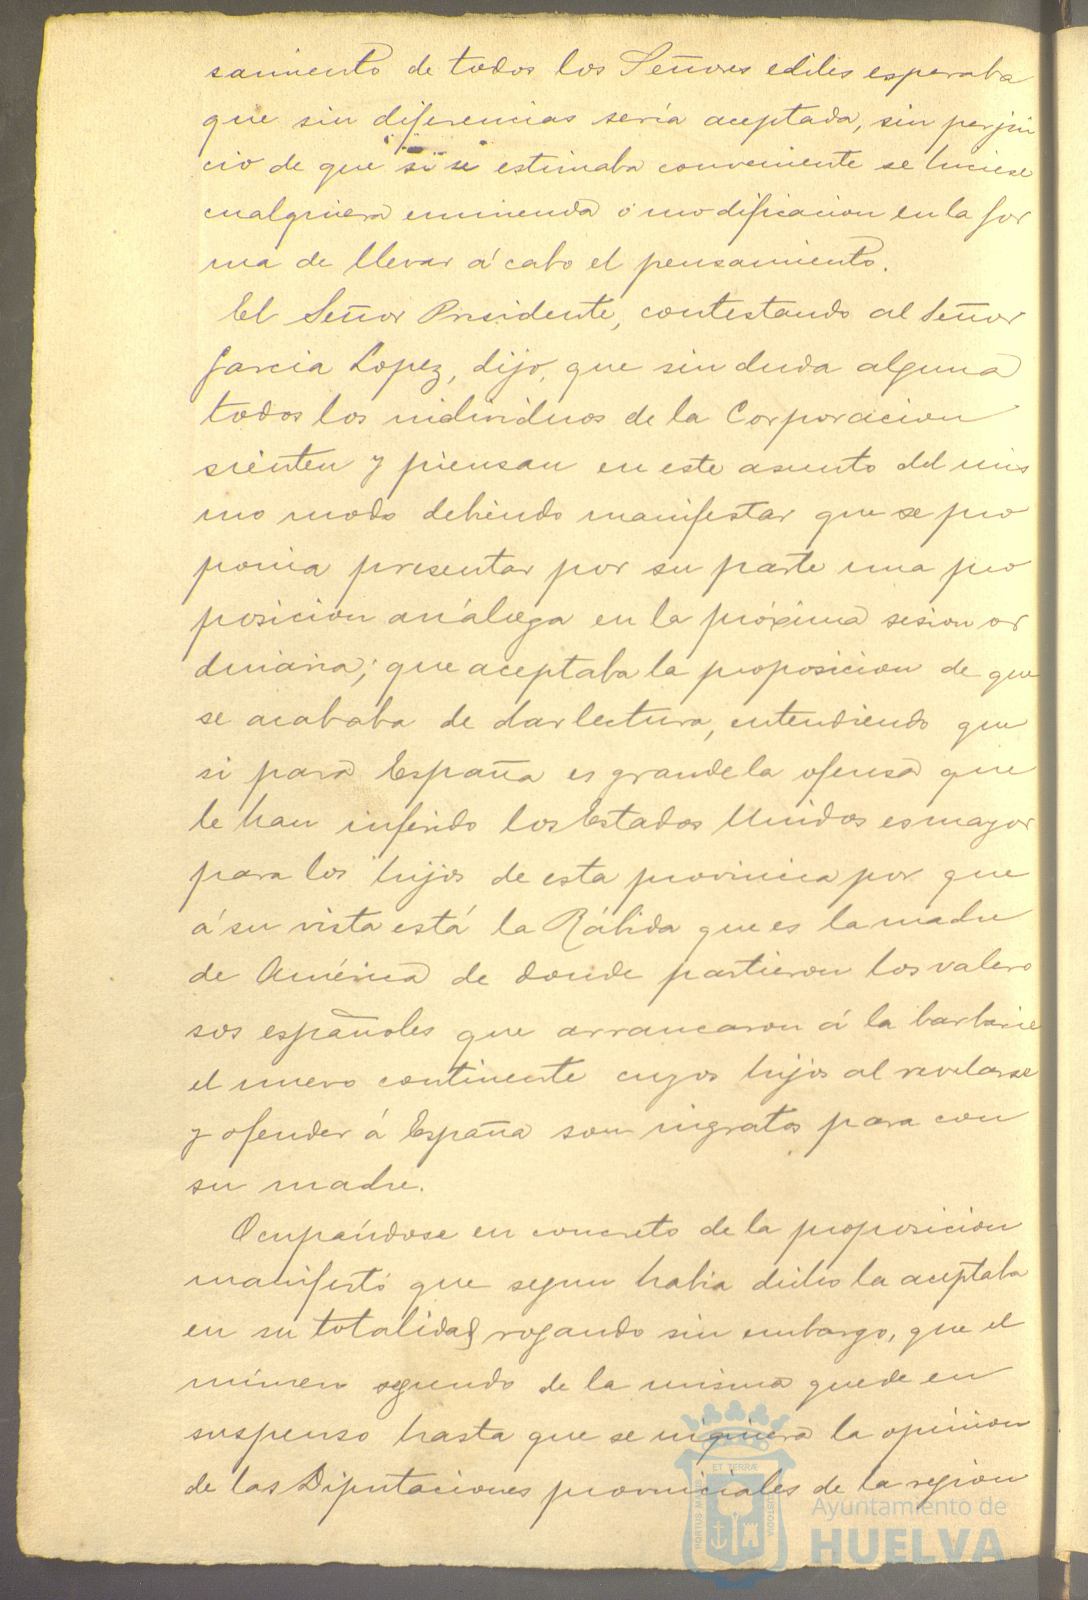 samiento de todos los Señores ediles esperaba
que sin diferencias sería aceptada, sin perjui
cio de que si se estimaba conveniente se hiciese
cualquiera enmienda ó modificacion en la for
ma de llevar á cabo el pensamiento.
El Señor Presidente, contestando al Señor
Garcia Lopez, dijo, que sin duda alguna
todos los individuos de la Corporacion
sienten y piensan en este asunto del mis
mo modo debiendo manifestar que se pro
ponia presentar por su parte una pro
posicion análoga en la próxima sesion or
dinaria; que aceptaba la proposicion de que
se acababa de dar lectura, entendiendo que
si para España es grande la ofensa que
le han inferido los Estados Unidos es mayor
para los hijos de esta provincia por que
á su vista está la Rábida que es la madre
de América de donde partieron los valero
sos españoles que arrancaron á la barbarie
el nuevo continente cuyos hijos al revelarse
y ofender á España son ingratos para con
su madre.
Ocupándose en concreto de la proposicion
manifestó que segun habia dicho la aceptaba
en su totalidad rogando sin embargo, que el
número segundo de la misma quede en
suspenso hasta que se inquiera la opinion
de las Diputaciones provinciales de la region
PORTUS MARIS ET TERRÆ CUSTODIA
Ayuntamiento de
HUELVA